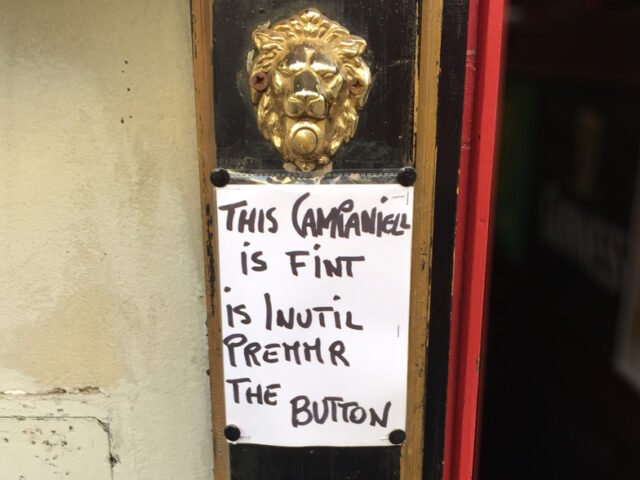 THIS CAMPANIELL
is FiNT
is INUTIL
PREMMR
THE BUTTON
GUINNESS